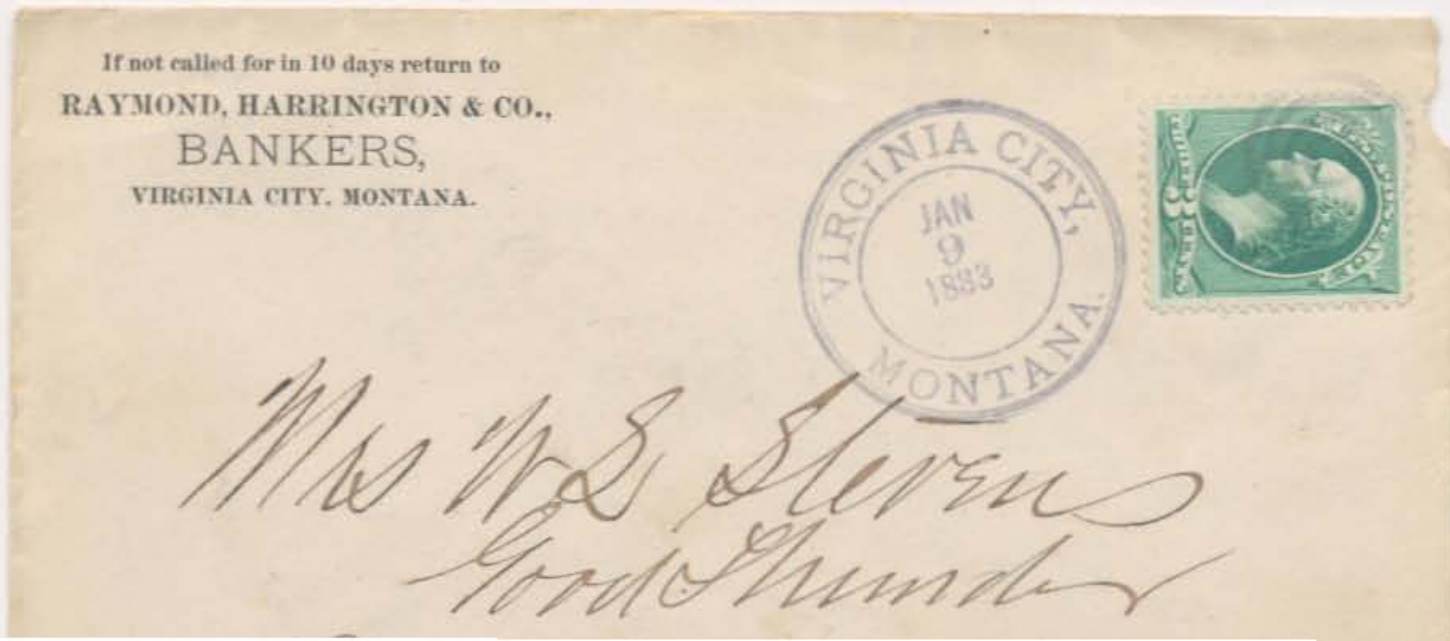 If not called for in 10 days return to
RAYMOND, HARRINGTON & CO.,
BANKERS,
VIRGINIA CITY, MONTANA.
VIRGINIA CITY,
JAN
9
1883
MONTANA.
Mrs W S Stevens
Good Thunder